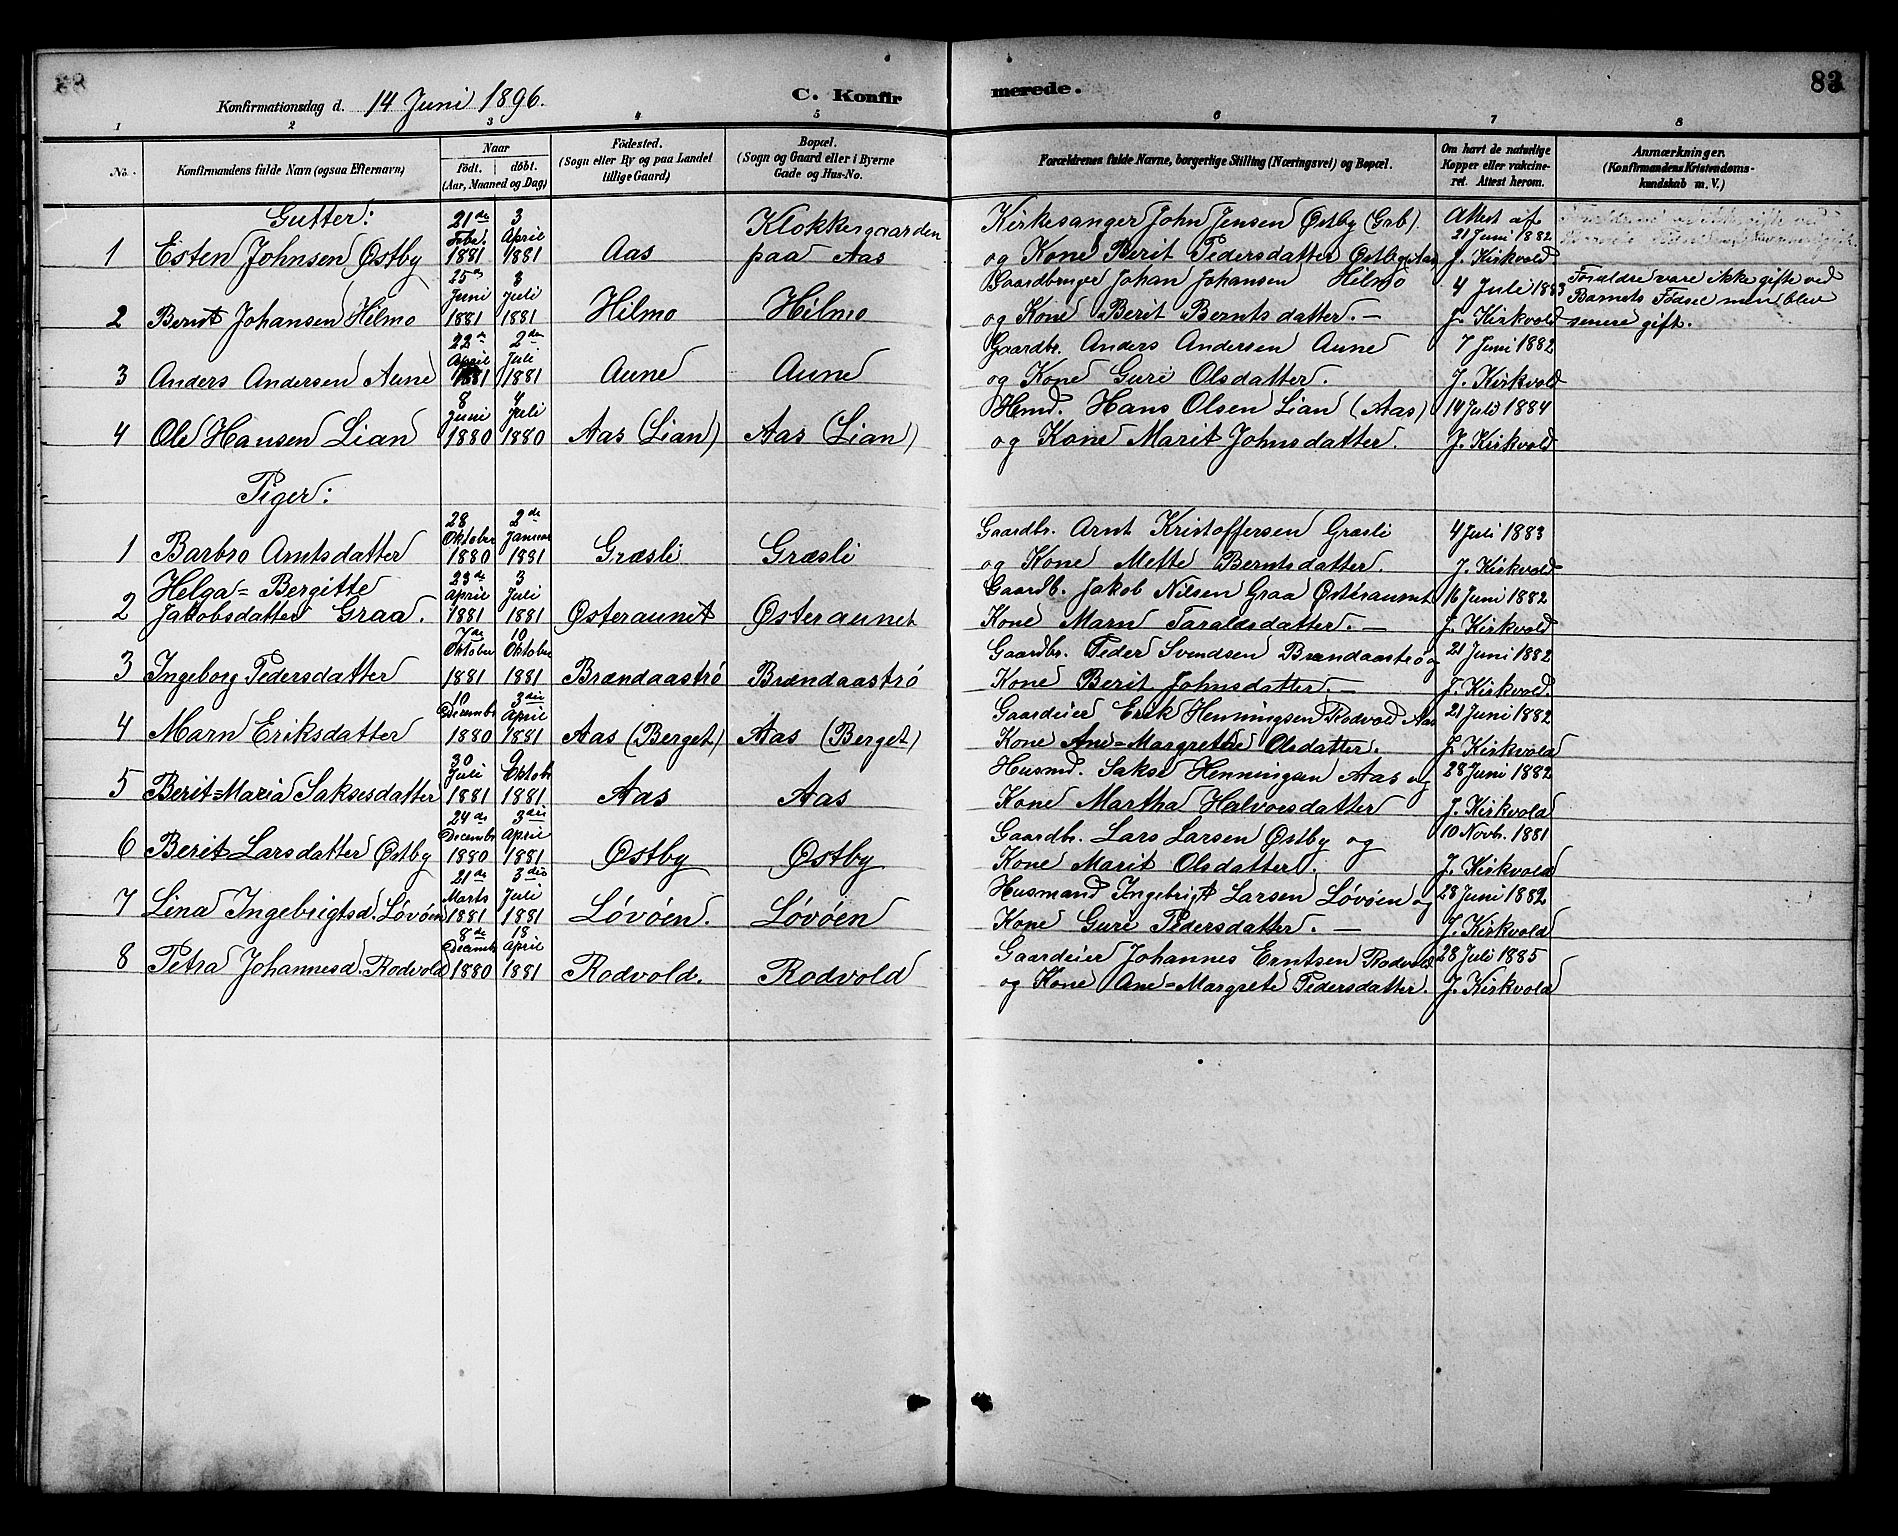 83
Konfirmationsdag d. 14 Juni 1896.
C. Konfirmerede.
1 2 3 4 5 6 7 8
No.
Konfirmandens fulde Navn (ogsaa Efternavn)
Naar
födt. döbt.
(Aar, Maaned og Dag)
Födested.
(Sogn eller By og paa Landet
tillige Gaard)
Bopæl.
(Sogn og Gaard eller i Byerne
Gade og Hus-No.
Forældrenes fulde Navne, borgerlige Stilling (Næringsvei) og Bopæl.
Om havt de naturlige
Kopper eller vakcine-
ret. Attest herom.
Anmærkninger.
(Konfirmandens Kristendoms-
kundskab m. V.)
Gutter:
1 Esten Johnsen Østby 21de Febr. 1881 3 April 1881 Aas Klokkergaarden paa Aas
Kirkesanger John Jensen Østby (Grb).
og Kone Berit Pedersdatter Østby
Attest af
21 Juni 1882
J. Kirkvold
2 Bernt Johansen Hilmo 25de Juni 1881 3 Juli 1881 Hilmo Hilmo
Gaardbruger Johan Johansen Hilmo
og Kone Berit Berntsdatter. —
4 Juli 1883
J. Kirkvold
Foraldre vare ikke gifte ved
Barnets Fødsel men blev
senere gift.
3 Anders Andersen Aune 22de April 1881 2de Juli 1881 Aune Aune
Gaardbr. Anders Andersen Aune
og Kone Guri Olsdatter.
7 Juni 1882
J. Kirkvold
4 Ole Hansen Lian 8 Juni 1880 4 Juli 1880 Aas (Lian) Aas (Lian)
Husmd. Hans Olsen Lian (Aas)
og Kone Marit Johnsdatter.
14 Juli 1884
J. Kirkvold
Piger:
1 Barbro Arntsdatter 28 Oktober 1880 2de Januar 1881 Græsli Græsli
Gaardbr. Arnt Kristoffersen Græsli
og Kone Mette Berntsdatter.
4 Juli 1883
J. Kirkvold
2 Helga=Bergitte
Jakobsdatter Graa. 23de April 1881 3 Juli 1881 Østeraunet Østeraunet
Gaardb. Jakob Nilsen Graa Østeraunet
Kone Marn Taraldsdatter. —
16 Juni 1882
J. Kirkvold
3 Ingeborg Pedersdatter 7de Oktober 1881 10 Oktober 1881 Brændaaströ Brændaaströ
Gaardbr. Peder Svendsen Brændaaströ og
Kone Berit Johnsdatter. —
21 Juni 1882
J. Kirkvold.
4 Marn Eriksdatter 10 Decembr 1880 3die April 1881 Aas (Berget) Aas (Berget)
Gaardeier Erik Henningsen Rodvold Aas
Kone Ane=Margrethe Olsdatter.
21 Juni 1882
J. Kirkvold
5 Berit=Maria Saksesdatter 30 Juli 1881 9 Oktobr 1881 Aas Aas
Husmd. Sakse Henningsen Aas og
Kone Martha Halvorsdatter
28 Juni 1882
J. Kirkvold
6 Berit Larsdatter Østby 24de Decembr 1880 3die April 1881 Østby Østby
Gaardbr. Lars Larsen Østby og
Kone Marit Olsdatter.
10 Novb. 1881
J. Kirkvold
7 Lina Ingebrigtsd. Løvøen 21de Marts 1881 3die Juli 1881 Løvøen. Løvøen
Husmand Ingebrigt Larsen Løvøen og
Kone Guri Pedersdatter. —
28 Juni 1882
J. Kirkvold
8 Petra Johannesd. Rodvold 8de Decembr 1880 18 April 1881 Rodvold. Rodvold
Gaardeier Johannes Erntsen Rodvold
og Kone Ane=Margrete Pedersdatter.
28 Juli 1885
J. Kirkvold